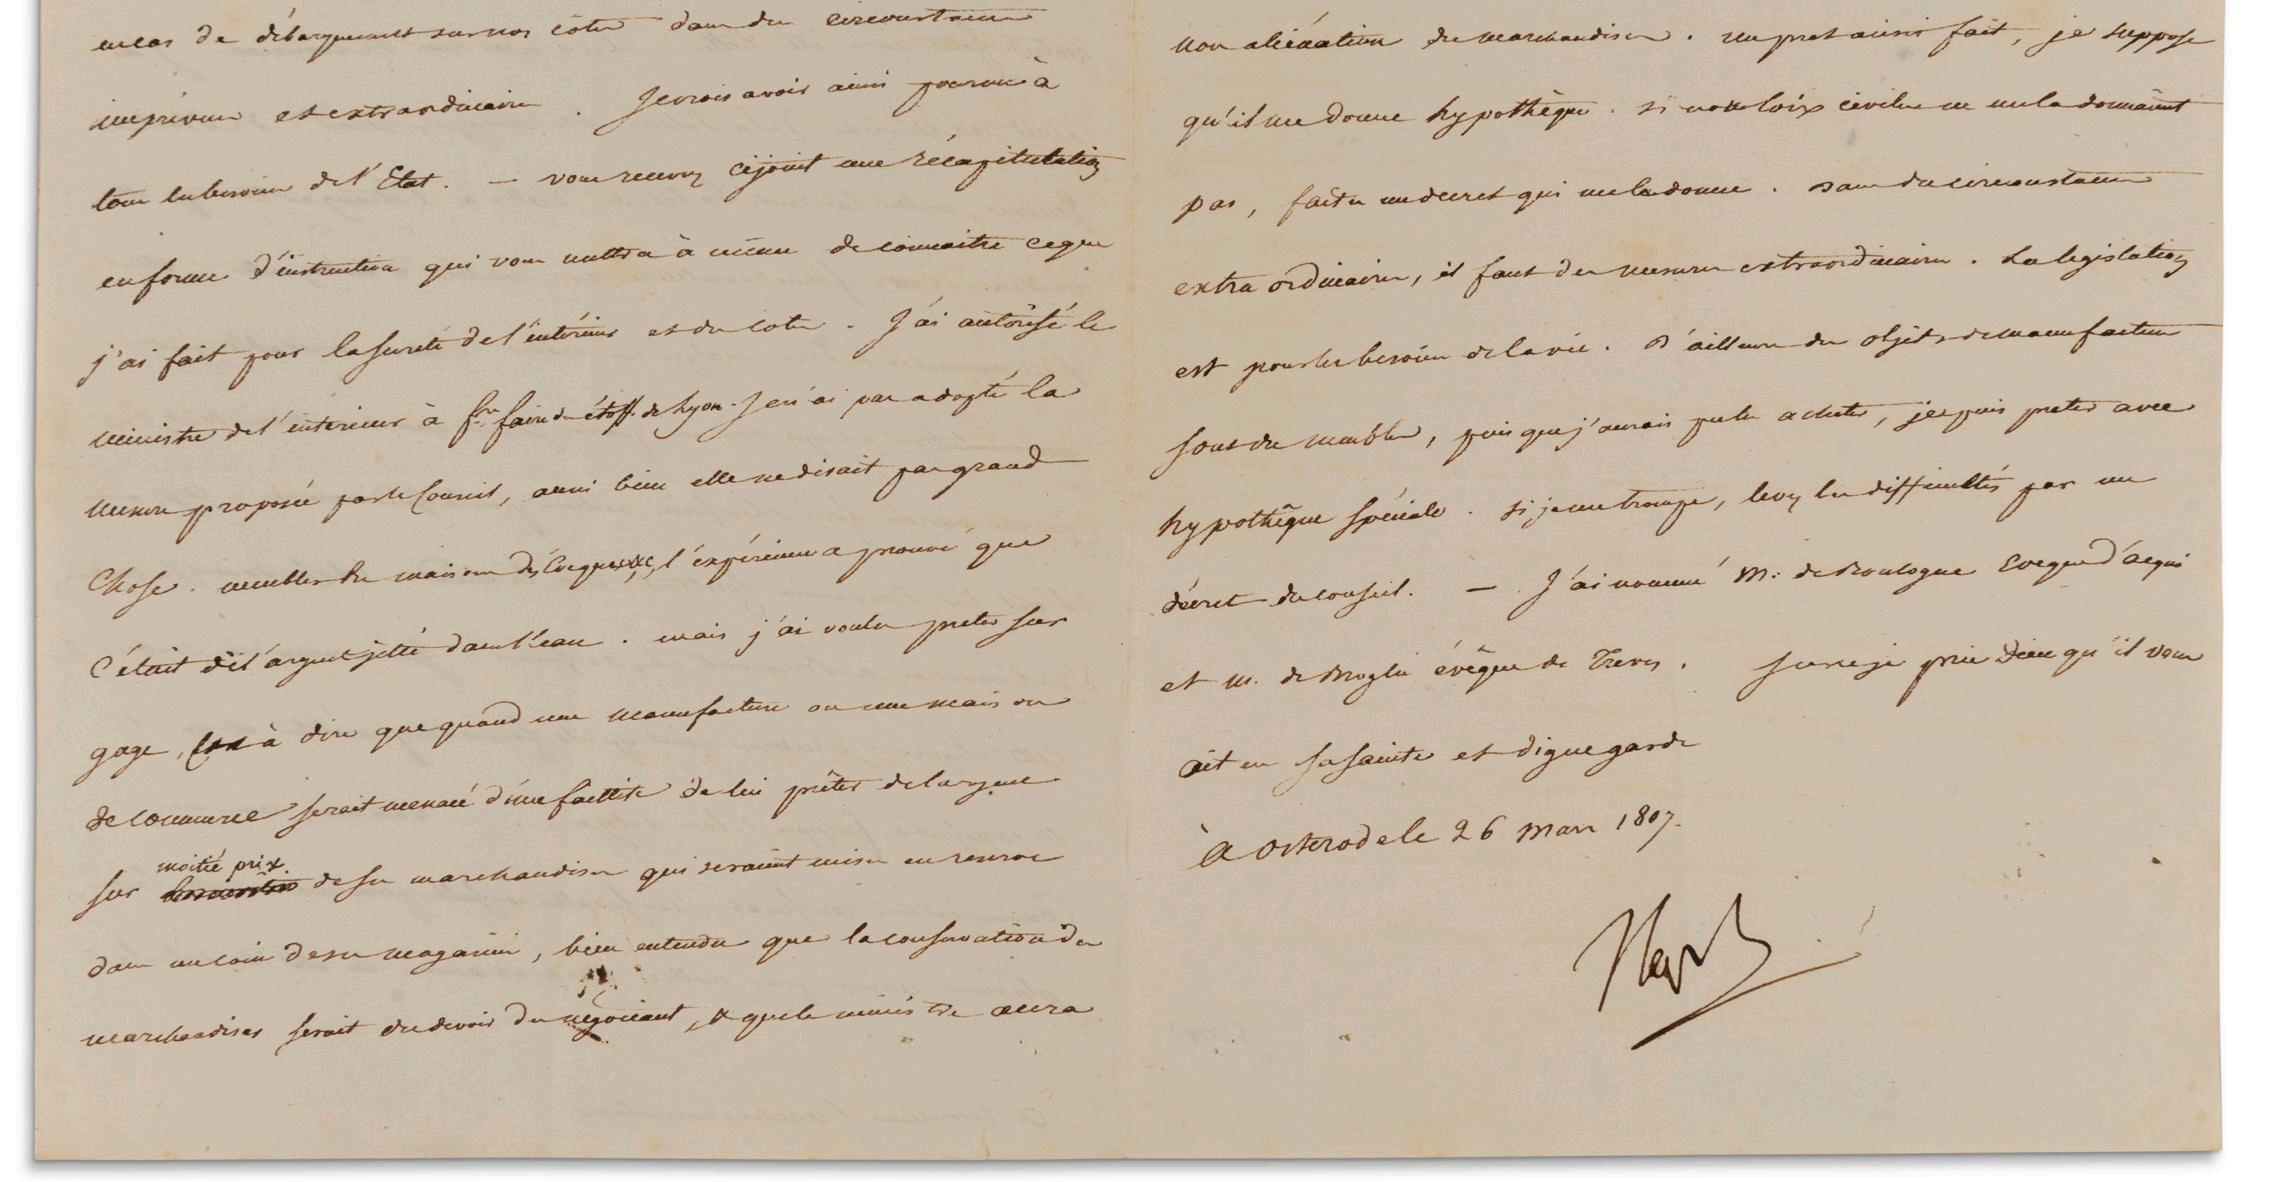 en cas de débarquement sur nos côtes dans des circonstances
imprévues et extraordinaires. Je crois avoir ainsi pourvu à
tous les besoins de l'Etat. — vous recevrez cijoint une récapitulation
en forme d'instruction qui vous mettra à même de connaitre ce que
j'ai fait pour la sureté de l'intérieur et des cotes. J'ai autorisé le
ministre de l'intérieur à faire des étoff. de Lyon. Je n'ai pas adopté la
mesure proposée par le Conseil, aussi bien elle ne disait pas grand
Chose. meubler les maisons des Evêques &c, l'expérience a prouvé que
C'était de l'argent jetté dans l'eau. mais j'ai voulu preter sur
gage, C'est à dire que quand une manufacture ou une maison
de commerce serait menacé d'une faillite de lui prêter de l'argent
moitié prix
sur de ses marchandises qui seraient mises en reserve
dans un coin de ses magasins, bien entendu que la conservation des
marchandises serait du devoir du négociant, & que le ministre aura
non aliénation des marchandises. un pret ainsi fait, je suppose
qu'il me donne hypothèque. si nos loix civiles ne me la donnaient
pas, faites un decret qui me la donne. Dans des circonstances
extra ordinaires, il faut des mesures extraordinaires. La legislation
est pour les besoins de la vie. D'ailleurs des objets de manufacture
sont des meubles, puisque j'aurais pu les acheter, je puis preter avec
hypothèque spéciale. si je me trompe, levez les difficultés par un
décret du conseil. — J'ai nommé M. de Boulogne Eveque d'acqui
et M. de Broglie évêque de Treves. Sur ce je prie Dieu qu'il vous
ait en sa sainte et digne garde
à Osterode le 26 Mars 1807.
Nap